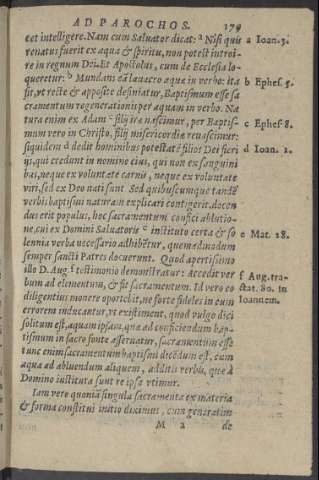 AD PAROCHOS. 179
eet intelligere. Nam cum Saluator dicat: ᵃ Nisi quis a Ioan. 3.
renatus fuerit ex aqua & spiritu, non potest introi-
re in regnum Dei. Et Apostolus, cum de Ecclesia lo-
queretur: ᵇ Mundans eā lauacro aqua in verbo: ita b Ephes. 5.
fit, vt recte & apposite definiatur, Baptismum esse sa
cramentum regenerationis per aquam in verbo. Na
tura enim ex Adam ᶜ filij ira nascimur, per Baptis- c Ephes 8.
mum vero in Christo, filij misericordia renascimur:
siquidem ᵈ dedit hominibus potestatē filios Dei fieri d Ioan. 1.
ijs, qui credunt in nomine eius, qui non ex sanguini
bus, neque ex voluntate carnis, neque ex voluntate
viri, sed ex Deo nati sunt Sed quibuscumque tandē
verbis baptismi naturam explicari contigerit, docen
dus erit populus, hoc sacramentum confici ablutio-
ne, cui ex Domini Saluatoris ᵉ instituto certa & so e Mat. 28.
lennia verba necessario adhibētur, quemadmodum
semper sancti Patres docuerunt. Quod apertissimo
illo D. Aug. ᶠ testimonio demonstratur: Accedit ver f Aug. tra-
bum ad elementum, & fit sacramentum. Id vero eo stat. 80. in
diligentius monere oportebit, ne forte fideles in eum Ioannem.
errorem inducantur, vt existiment, quod vulgo dici
solitum est, aquam ipsam, qua ad conficiendum bap-
tismum in sacro fonte asseruatur, sacramentum esse
tunc enim sacramentum baptismi dicēdum est, cum
aqua ad abluendum aliquem, additis verbis, qua à
Domino instituta sunt re ipsa vtimur.
Iam vero quoniā singula sacramenta ex materia
& forma constitui initio diximus, cum generatim
M 2 de